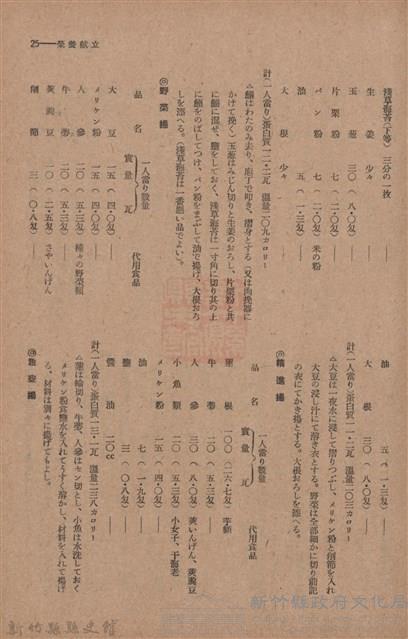 25——榮養獻立
淺草海苔(下等) 三分の一枚
生姜 少々
玉葱 三〇(八・〇匁)
片栗粉 七(二・〇匁) 米の粉
パン粉 七(二・〇匁)
油 五(一・三匁)
大根 少々
計(一人當り)蛋白質一二・二瓦 溫量二〇九カロリー
△鰯はわたのみ去り、庖丁で叩き、擂身とする(又は肉挽器に
かけて挽く)玉葱はみじん切りと生姜のおろし、片栗粉と共
に鰯に混ぜ、鹽をしておく、淺草海苔は一寸角に切り其の上
に鰯をのばしてつけ、パン粉をまぶして油で揚げ、大根おろ
しを添へる。(淺草海苔は一番悪い品でよい)。
◎野菜揚
品名 一人當り數量 實量 瓦 代用食品
大豆 一五(四・〇匁)——
メリケン粉 一五(四・〇匁)——
人參 二〇(五・三匁) 種々の野菜類
牛蒡 二〇(五・三匁)
莢豌豆 一〇(二・五匁) さやいんげん
削節 三(〇・八匁)——
油 五(一・三匁)——
大根 三〇(八・〇匁)——
計(一人當り)蛋白質一一・二瓦 溫量二〇三カロリー
△大豆は一夜水に浸して摺りつぶし、メリケン粉と削節を入れ
大豆の浸し汁にて溶き衣とする。野菜は全部細かに切り前記
の衣にてかき揚とする。大根おろしを添へる。
◎精進揚
品名 一人當り數量 實量 瓦 代用食品
蓮根 一〇〇(二六・七匁) 芋類
牛蒡 二〇(五・三匁)
人參 三〇(八・〇匁) 莢いんげん、莢豌豆
小魚類 二〇(五・三匁) 小女子、干海老
メリケン粉 一五(四・〇匁)——
油 七(一・九匁)——
鹽 三(〇・八匁)——
醬油 二〇cc——
計(一人當り)蛋白質一三・一瓦 溫量二三八カロリー
△蓮は輪切り、牛蒡、人參はセン切とし、小魚は水洗しておく
メリケン粉食鹽水を入れてうすく溶かし、材料を入れて揚げ
る、材料は別々に揚げてもよし。
新竹縣政府文化局
新竹縣縣史館